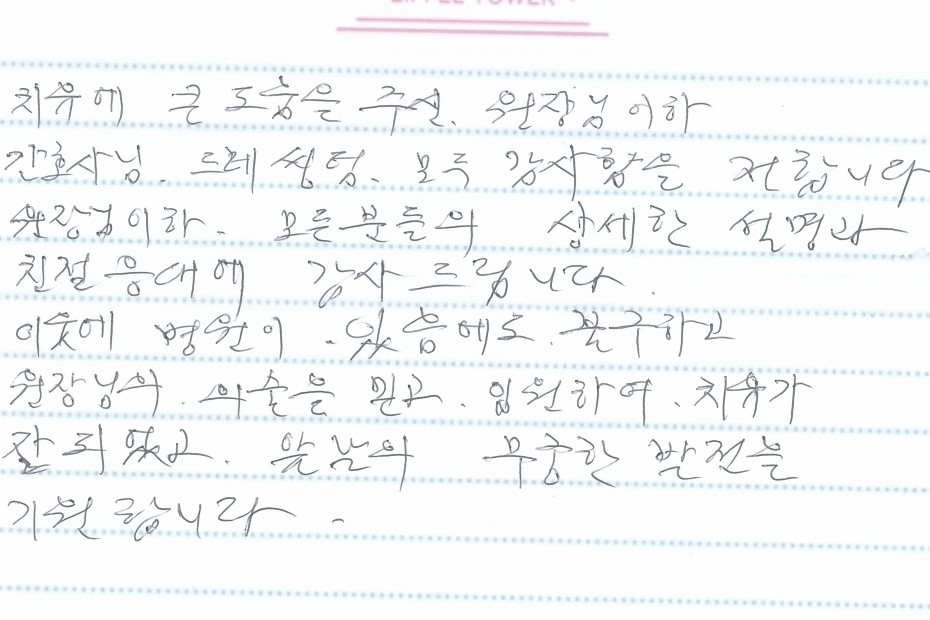 EIFFEL TOWER
치유에 큰 도움을 주신. 원장님 이하
간호사님. 드레씽팀. 모두 감사함을 전합니다
원장님이하. 모든분들의 상세한 설명과
친절 응대에 감사 드림니다.
이웃에 병원이. 있음에도. 불구하고
원장님의. 의술을 믿고. 입원하여. 치유가
잘 되었고. 앞날의 무궁한 발전을
기원 합니다.